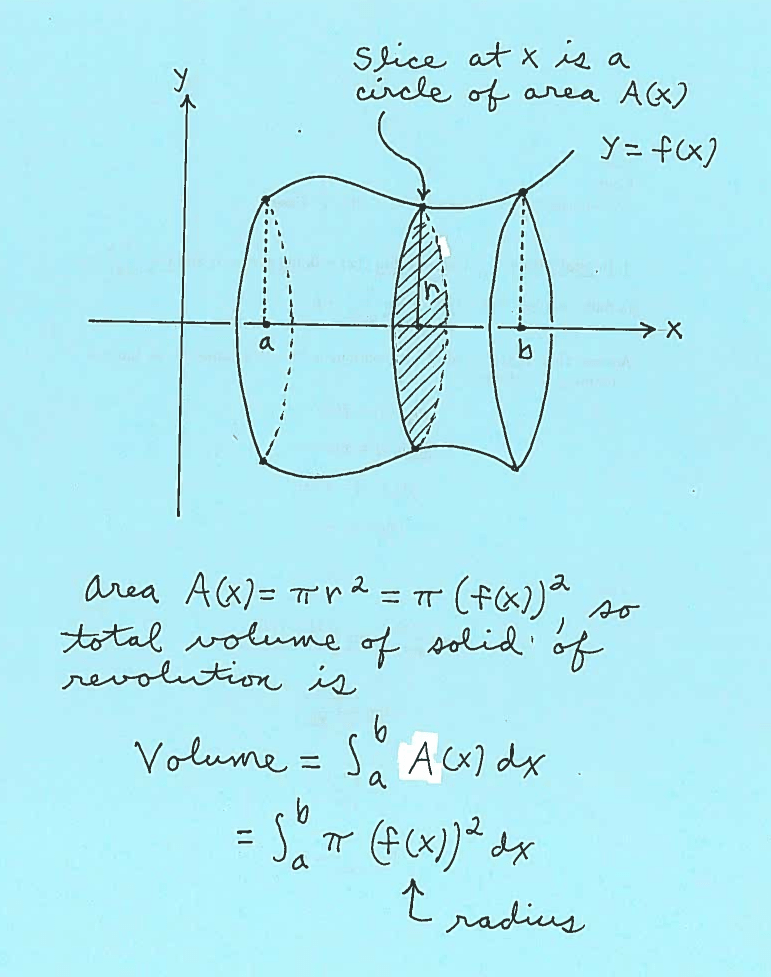 y
Slice at x is a
circle of area A(x)
y = f(x)
r
a
b
x
Area A(x) = πr² = π (f(x))², so
total volume of solid of
revolution is
Volume = ∫ₐᵇ A(x) dx
= ∫ₐᵇ π (f(x))² dx
radius